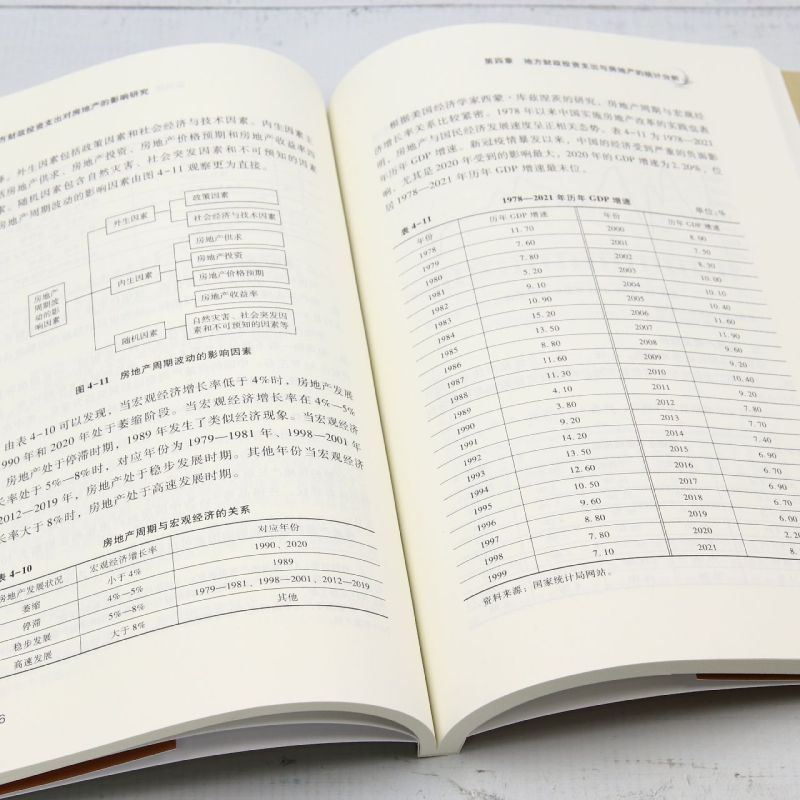 方财政投资支出对房地产的影响研究
外生因素包括政策因素和社会经济与技术因素。内生因素主
括房地产供求、房地产投资、房地产价格预期和房地产收益率四
随机因素包含自然灾害、社会突发因素和不可预知的因素
房地产周期波动的影响因素由图4-11观察更为直接。
房地产周期波动的影响因素
外生因素
政策因素
社会经济与技术因素
内生因素
房地产供求
房地产投资
房地产价格预期
房地产收益率
随机因素
自然灾害、社会突发因
素和不可预知的因素等
图4-11 房地产周期波动的影响因素
由表4-10可以发现，当宏观经济增长率低于4%时，房地产发展
990年和2020年处于萎缩阶段。当宏观经济增长率在4%—5%
房地产处于停滞时期，1989年发生了类似经济现象。当宏观经济
长率处于5%—8%时，对应年份为1979—1981年、1998—2001年
2012—2019年，房地产处于稳步发展时期。其他年份当宏观经济
长率大于8%时，房地产处于高速发展时期。
表4-10 房地产周期与宏观经济的关系
房地产发展状况 宏观经济增长率 对应年份
萎缩 小于4% 1990、2020
停滞 4%—5% 1989
稳步发展 5%—8% 1979—1981、1998—2001、2012—2019
高速发展 大于8% 其他
6
第四章 地方财政投资支出与房地产的统计分析
根据美国经济学家西蒙·库兹涅茨的研究，房地产周期与宏观经
济增长率关系比较紧密。1978年以来中国实施房地产改革的实践也表
明，房地产与国民经济发展速度呈正相关态势。表4-11为1978—2021
年历年GDP增速。新冠疫情暴发以来，中国的经济受到严重的负面影
响，尤其是2020年受到的影响最大，2020年的GDP增速为2.20%，位
居1978—2021年历年GDP增速最末位。
表4-11 1978—2021年历年GDP增速 单位：%
年份 历年GDP增速 年份 历年GDP增速
1978 11.70 2000 8.90
1979 7.60 2001 7.50
1980 7.80 2002 8.50
1981 5.20 2003 10.00
1982 9.10 2004 10.10
1983 10.90 2005 10.40
1984 15.20 2006 11.60
1985 13.50 2007 11.90
1986 8.80 2008 9.60
1987 11.60 2009 9.20
1988 11.30 2010 10.40
1989 4.10 2011 9.20
1990 3.80 2012 7.80
1991 9.20 2013 7.70
1992 14.20 2014 7.40
1993 13.50 2015 6.90
1994 12.60 2016 6.70
1995 10.50 2017 6.90
1996 9.60 2018 6.70
1997 8.80 2019 6.
1998 7.80 2020 2.2
1999 7.10 2021 8.
资料来源：国家统计局网站。